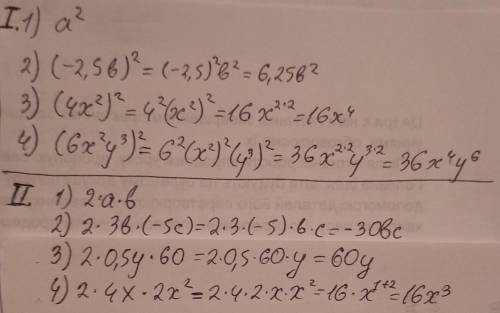 I. 1) a²
2) (-2,5в)² = (-2,5)²в² = 6,25в²
3) (4x²)² = 4²(x²)² = 16x²·² = 16x⁴
4) (6x²y³)² = 6²(x²)²(y³)² = 36x²·²y³·² = 36x⁴y⁶
II. 1) 2·a·в
2) 2·3в·(-5c) = 2·3·(-5)·в·c = -30вc
3) 2·0,5y·60 = 2·0,5·60·y = 60y
4) 2·4x·2x² = 2·4·2·x·x² = 16·x¹⁺² = 16x³